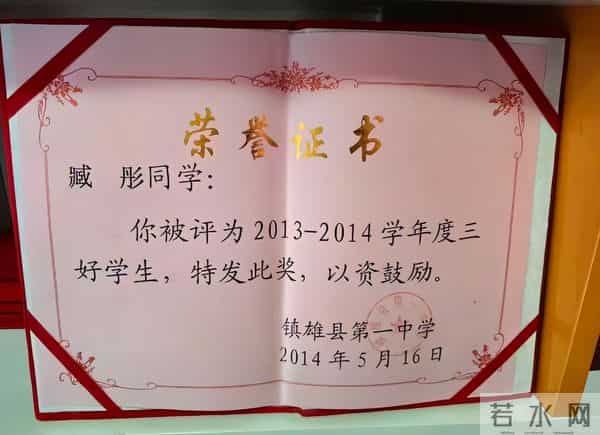 荣誉证书
臧 彤同学：
你被评为2013-2014学年度三
好学生，特发此奖，以资鼓励。
镇雄县第一中学
2014年5月16日
若水网